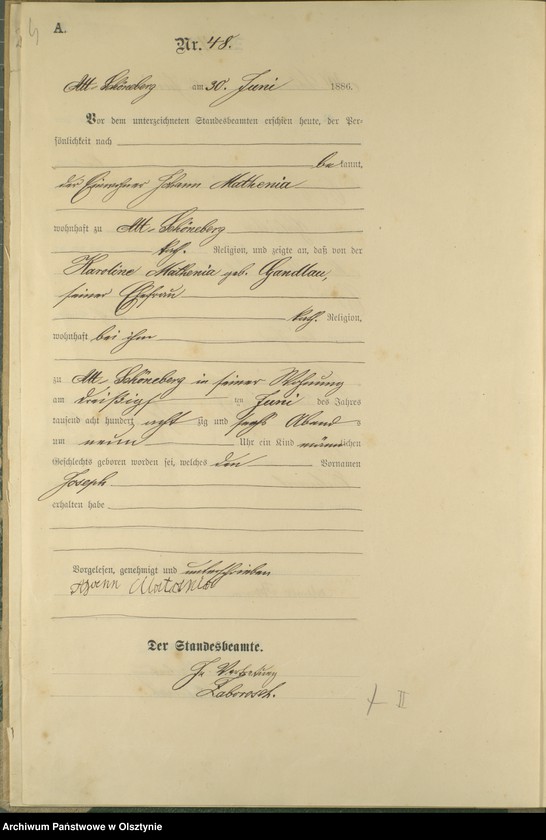 A.
Nr. 48.
Alt-Schöneberg am 30. Juni 1886.
Vor dem unterzeichneten Standesbeamten erschien heute, der Per-
sönlichkeit nach
be kannt,
der Einwohner Johann Mathenia
wohnhaft zu Alt-Schöneberg
kath. Religion, und zeigte an, daß von der
Karoline Mathenia geb. Gandlau,
seiner Ehefrau
kath. Religion,
wohnhaft bei ihm
zu Alt-Schöneberg in seiner Wohnung
am dreißigsten Juni des Jahres
tausend acht hundert acht zig und sechs Abends
um neun Uhr ein Kind männlichen
Geschlechts geboren worden sei, welches den Vornamen
Joseph
erhalten habe
Vorgelesen, genehmigt und unterschrieben
Der Standesbeamte.
In Vertretung
Zaborosch.
II
Archiwum Państwowe w Olsztynie